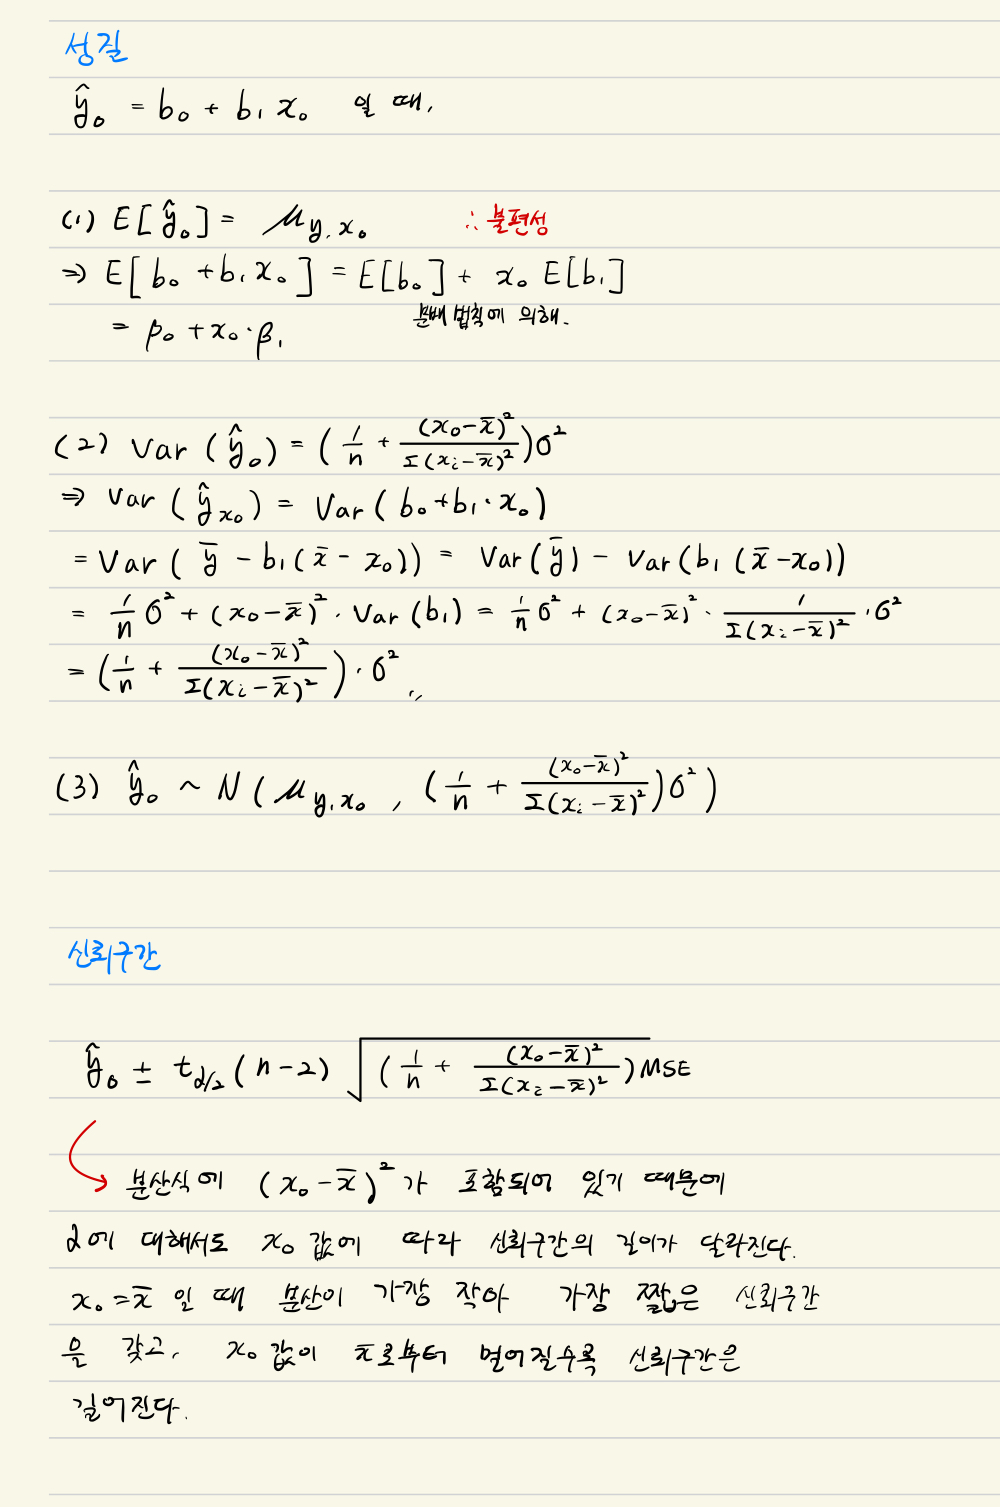 성질
ŷ₀ = b₀ + b₁ x₀ 일 때,
(1) E[ŷ₀] = μ_{y.x₀} ∴ 불편성
⇒ E[b₀ + b₁x₀] = E[b₀] + x₀ E[b₁]
= β₀ + x₀·β₁ 분배법칙에 의해.
(2) Var(ŷ₀) = (1/n + (x₀-x̄)²/Σ(xᵢ-x̄)²)σ²
⇒ Var(ŷ_{x₀}) = Var(b₀+b₁·x₀)
= Var(ȳ - b₁(x̄ - x₀)) = Var(ȳ) - Var(b₁(x̄-x₀))
= 1/n σ² + (x₀-x̄)²·Var(b₁) = 1/n σ² + (x₀-x̄)²·1/Σ(xᵢ-x̄)²·σ²
= (1/n + (x₀-x̄)²/Σ(xᵢ-x̄)²)·σ² 〃
(3) ŷ₀ ~ N(μ_{y,x₀}, (1/n + (x₀-x̄)²/Σ(xᵢ-x̄)²)σ²)
신뢰구간
ŷ₀ ± t_{α/2}(n-2) √(1/n + (x₀-x̄)²/Σ(xᵢ-x̄)²)MSE
분산식에 (x₀-x̄)²가 포함되어 있기 때문에
α에 대해서도 x₀ 값에 따라 신뢰구간의 길이가 달라진다.
x₀=x̄ 일 때 분산이 가장 작아 가장 짧은 신뢰구간
을 갖고, x₀ 값이 x̄로부터 멀어질수록 신뢰구간은
길어진다.